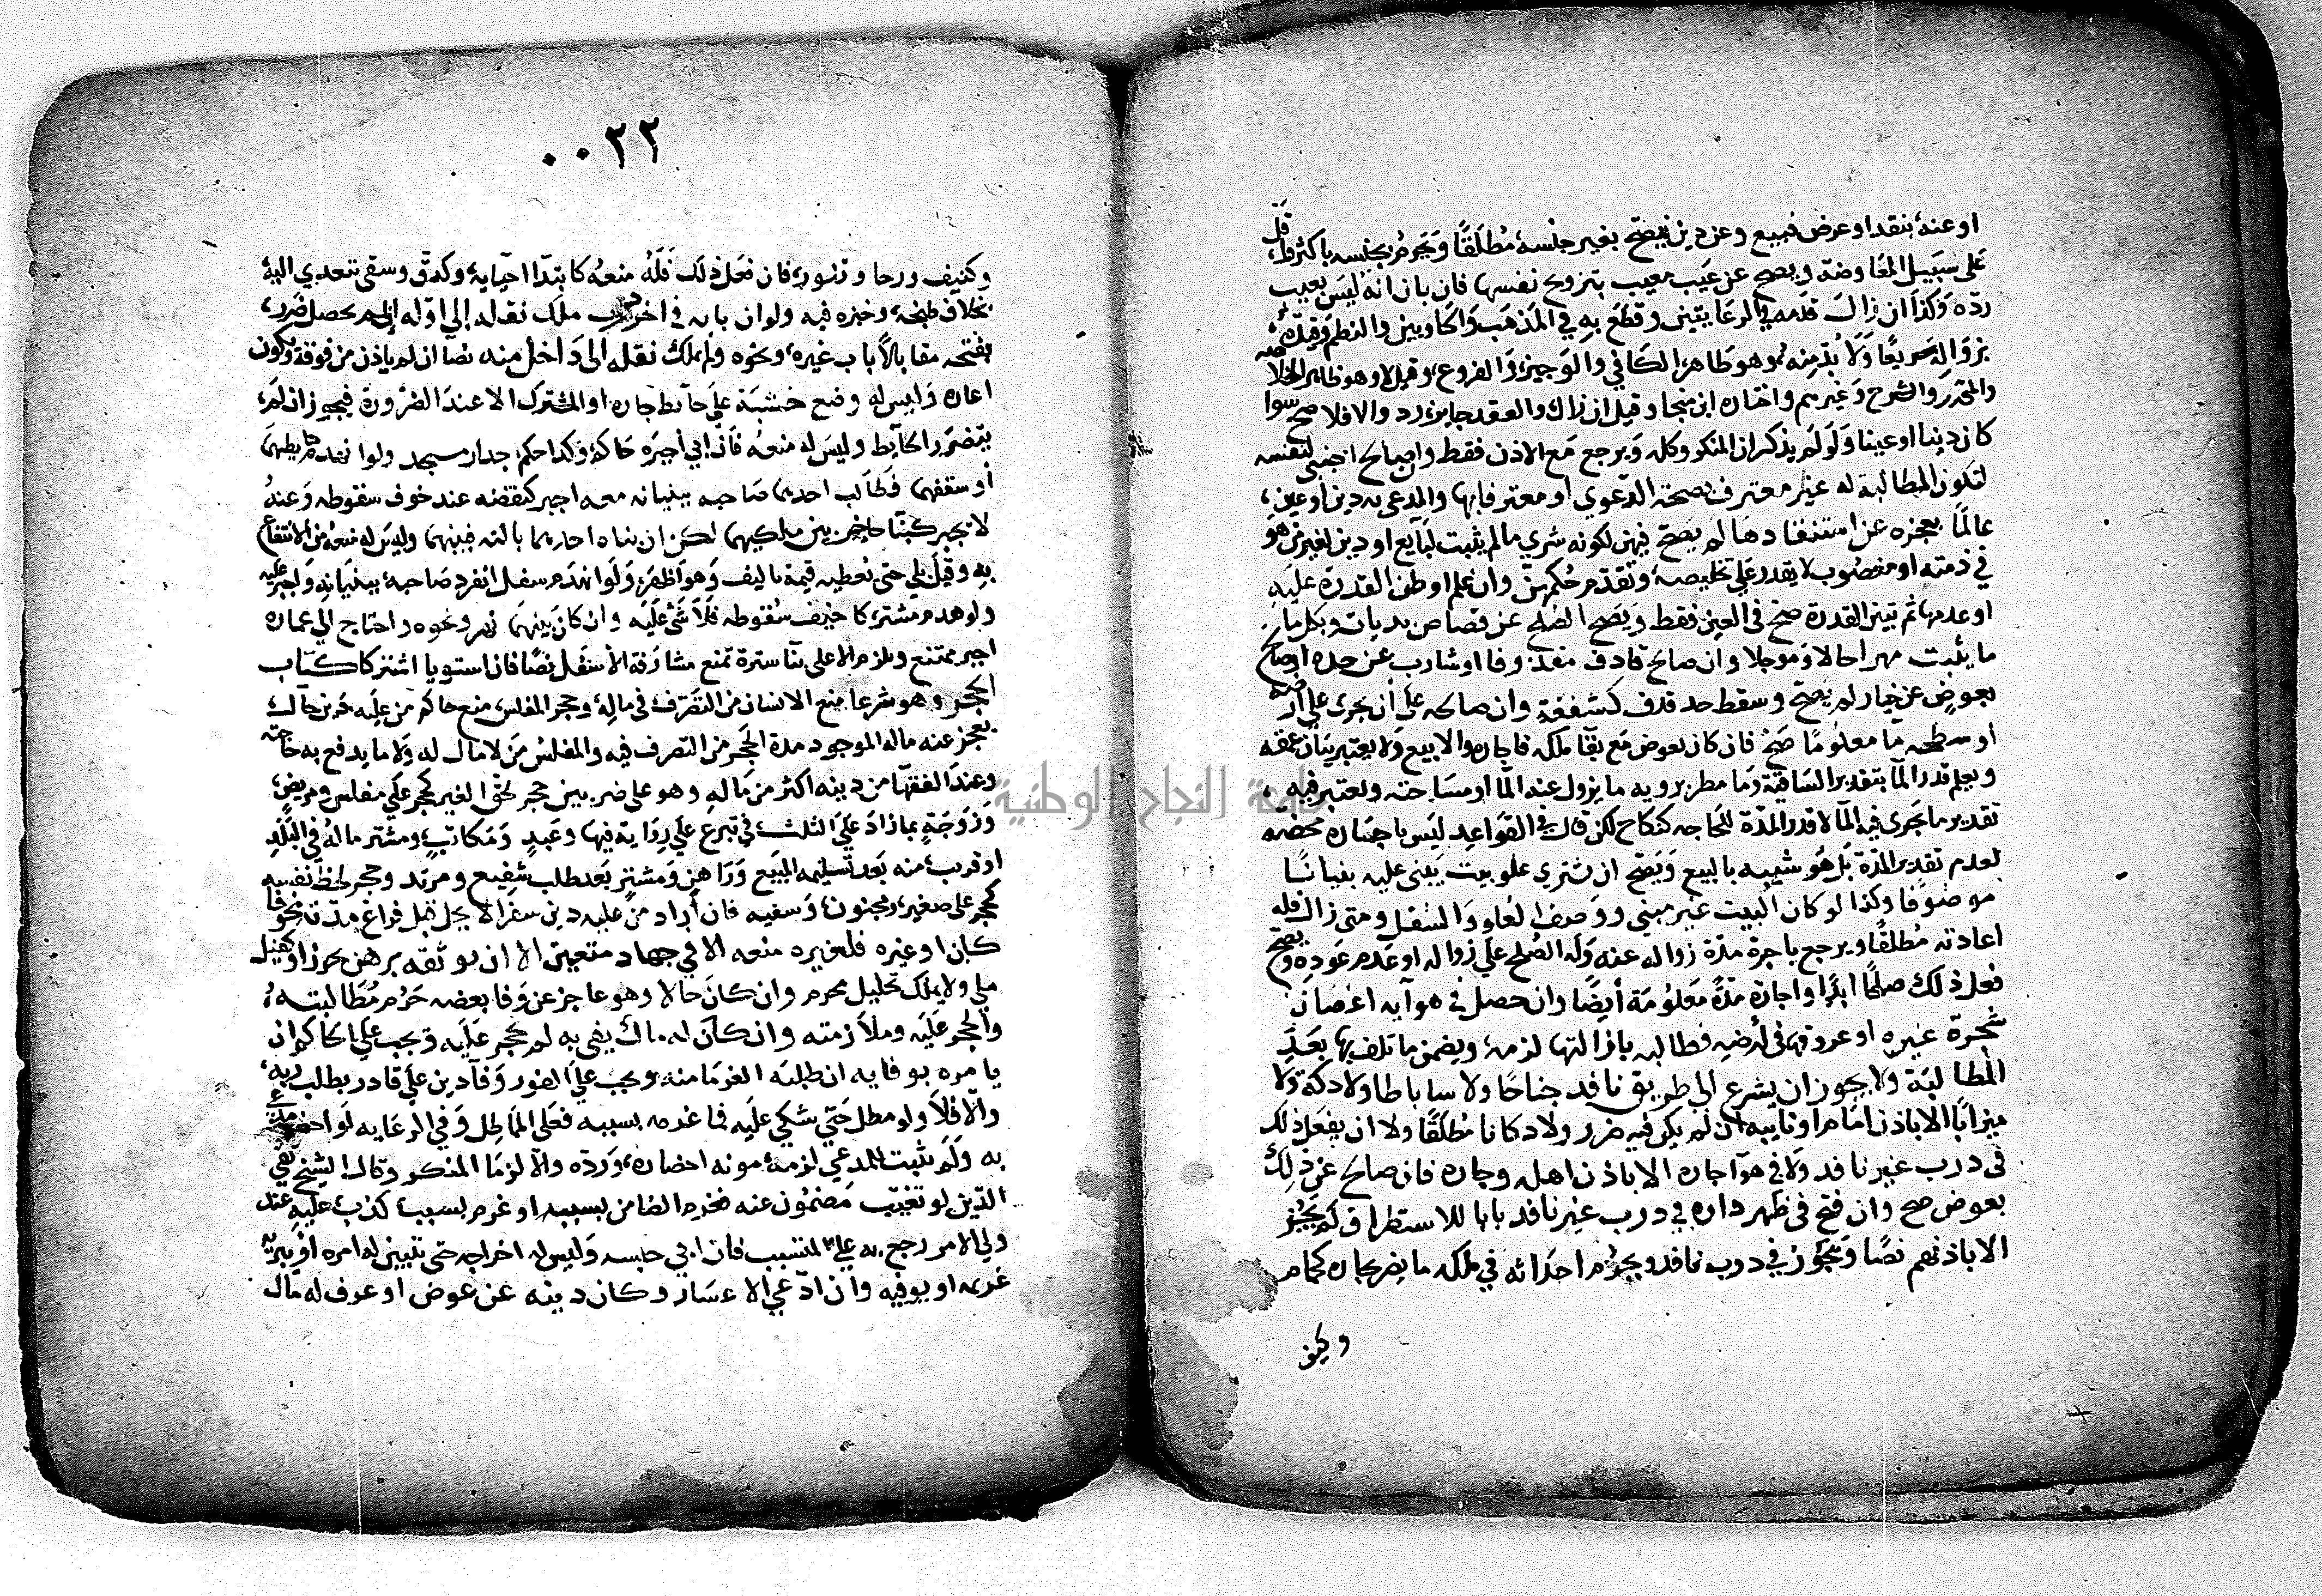 او عنه بنقد او عرض فبيع وعن دين فيصح بغير جنسه مطلقا ويحرم بجنسه باكثر واقل
على سبيل المعاوضة ويصح عن عيب مبيع بتزويج نفسها فان بان انه ليس بعيب
رده وكذا ان زال قدمه في الرعايتين وقطع به في المذهب والحاويين والنظم وقيده
بزواله سريعا ولا بد منه وهو ظاهر الكافي والوجيز والفروع وقيل لا وهو ظاهر الخلاصة
والمحرر والشرح وغيرهم واختاره ابن منجا وقيل ان زال والعقد جايز رد والا فلا صح سوا
كان دينا او عينا ولو لم يذكر ان المنكر وكله ويرجع مع الاذن فقط وان صالح اجنبي لنفسه
لتكون المطالبة له غير معترف بصحة الدعوي او معترفا بها والمدعى به دين او عين
عالما بعجزه عن استنقاذها لم يصح فيهن لكونه شري ما لم يثبت لبايع او دين لغير من هو
في ذمته او مغصوب لا يقدر على تخليصه وتقدم حكمهن وان علم او ظن القدرة عليه
او عدمها ثم تبين القدرة صح في العين فقط ويصح الصلح عن قصاص بديات وبكل ما
ما يثبت مهرا حالا وموجلا وان صالح قاذف مقذوفا او شارب عن حده او صالح
بعوض عن خيار لم يصح وسقط حد قذف كشفعة وان صالحه على أن يجرى على ارضه
او سطحه ما معلوما صح فان كان بعوض مع بقا ملكه فاجارة والا بيع ولا يعتبر بيان عمقه
ويعلم قدر الما بتقدير الساقية وما مطر برويه ما يزول عنه الما او مساحته ويعتبر فيه
تقدير ما يجرى فيه الما لا قدر المدة للحاجه كنكاح لكن قال في القواعد ليس باجارة محضه
لعدم تقدير المدة بل هو شبيه بالبيع ويصح ان يشتري علو بيت يبنى عليه بنيانا
موصوفا وكذا لو كان البيت غير مبني ووصف العلو والسفل ومتى زال فله
اعادته مطلقا ويرجع باجرة مدة زواله عنه وله الصلح على زواله او عدم عوده ويصح
فعل ذلك صلحا ابدا واجارة مدة معلومة أيضا وان حصل في هوآيه اغصان
شجرة غيره او عروقها في أرضه فطالبه بازالتها لزمه ويضمن ما تلف بها بعد
المطالبة ولا يجوز ان يشرع الى طريق نافد جناحا ولا ساباطا ولا دكة ولا
ميزابا الا باذن امام او نايبه ان لم يكن فيه ضرر ولا دكانا مطلقا ولا ان يفعل ذلك
في درب غير نافد ولا في هوآ جاره الا باذن اهله وجاره فان صالح عن ذلك
بعوض صح وان فتح في ظهر داره في درب غير نافد بابا للاستطراق لم يجز
الا باذنهم نصا ويجوز في درب نافد ويحرم احداثه في ملكه ما يضر بجاره كحمام
وكنيف
٠٠٢٢
وكنيف ورحا وتنور فان فعل ذلك فله منعه كابتدا احيايه وكدق وسقي تتعدي اليه
بخلاف طبخه وخبزه فيه ولو ان بابه في اخر درب ملك نقله إلى اوله ان لم يحصل ضرر
بفتحه مقابلا باب غيره ونحوه ولم يملك نقله الى داخل منه نصا ان لم ياذن من فوقه ويكون
اعاره وليس له وضع خشبة على حآيط جاره او المشترك الا عند الضرورة فيجوز ان لم
يتضرر الحآيط وليس له منعه فان ابي أجبره حاكم وكذا حكم جدار مسجد ولو انهدم حايطهما
أو سقفهما فطالب احدهما صاحبه ببنيانه معه اجبر كنقضه عند خوف سقوطه وعنه
لا يجبر كبنا حاجز بين ملكيهما لكن ان بناه احدهما بالته فبينهما وليس له منعه من الانتفاع
به وقيل بلى حتى يعطيه قيمة تاليف وهو أظهر ولو انهدم سفل انفرد صاحبه ببنيانه واجبر عليه
ولو هدم مشتركا خيف سقوطه فلا شئ عليه وان كان بينهما نهر ونحوه واحتاج الى عمارة
اجبر ممتنع ويلزم الاعلى بنا سترة تمنع مشارفة الأسفل نصا فان استويا اشتركا كتاب
الحجر وهو شرعا منع الانسان من التصرف في ماله وحجر المفلس منع حاكم من عليه دين حال
يعجز عنه ماله الموجود مدة الحجر من التصرف فيه والمفلس من لا مال له ولا ما يدفع به حاجته
وعند الفقها من دينه أكثر من ماله وهو على ضربين حجر لحق الغير كحجر على مفلس ومريض
وزوجة بما زاد على الثلث في تبرع على رواية فيها وعبد ومكاتب ومشتر ماله في البلد
او قريب منه بعد تسليمه المبيع وراهن ومشتر بعد طلب شفيع ومرتد وحجر لحظ نفسه
كحجر على صغير ومجنون وسفيه فان أراد من عليه دين سفرا لا يحل قبل فراغ مدته مخوفا
كان او غيره فلغريمه منعه الا في جهاد متعين الا ان يوثقه برهن محرز او كفيل
ملي ولا يملك تحليل محرم وان كان حالا وهو عاجز عن وفا بعضه حرم مطالبته
والحجر عليه وملازمته وان كان له مال يفي به لم يحجر عليه ويجب على الحاكم ان
يامره بوفايه ان طلبه الغرما منه ويجب على الفور وفا دين على قادر بطلب ربه
والا فلا ولو مطل حتى شكي عليه فما غرمه بسببه فعلى المماطل وفي الرعايه لو احضر مدعى
به ولم يثبت للمدعي لزمه مونه احضاره ورده والا لزما المنكر وقال الشيخ تقي
الدين لو تغيب مضمون عنه فغرم الضامن بسببه او غرم بسبب كذب عليه عند
ولي الامر رجع به على المتسبب فان ابي حبسه وليس له اخراجه حتى تبين له امره او يبريه
غريمه او يوفيه وان ادعي الاعسار وكان دينه عن عوض او عرف له مال